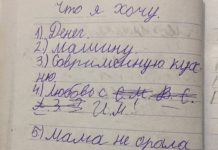 что я хочу.
1) Денег.
2) машину.
3) Современную кух
ню.
4) Любовь с
И.М!
5) Мама не орала